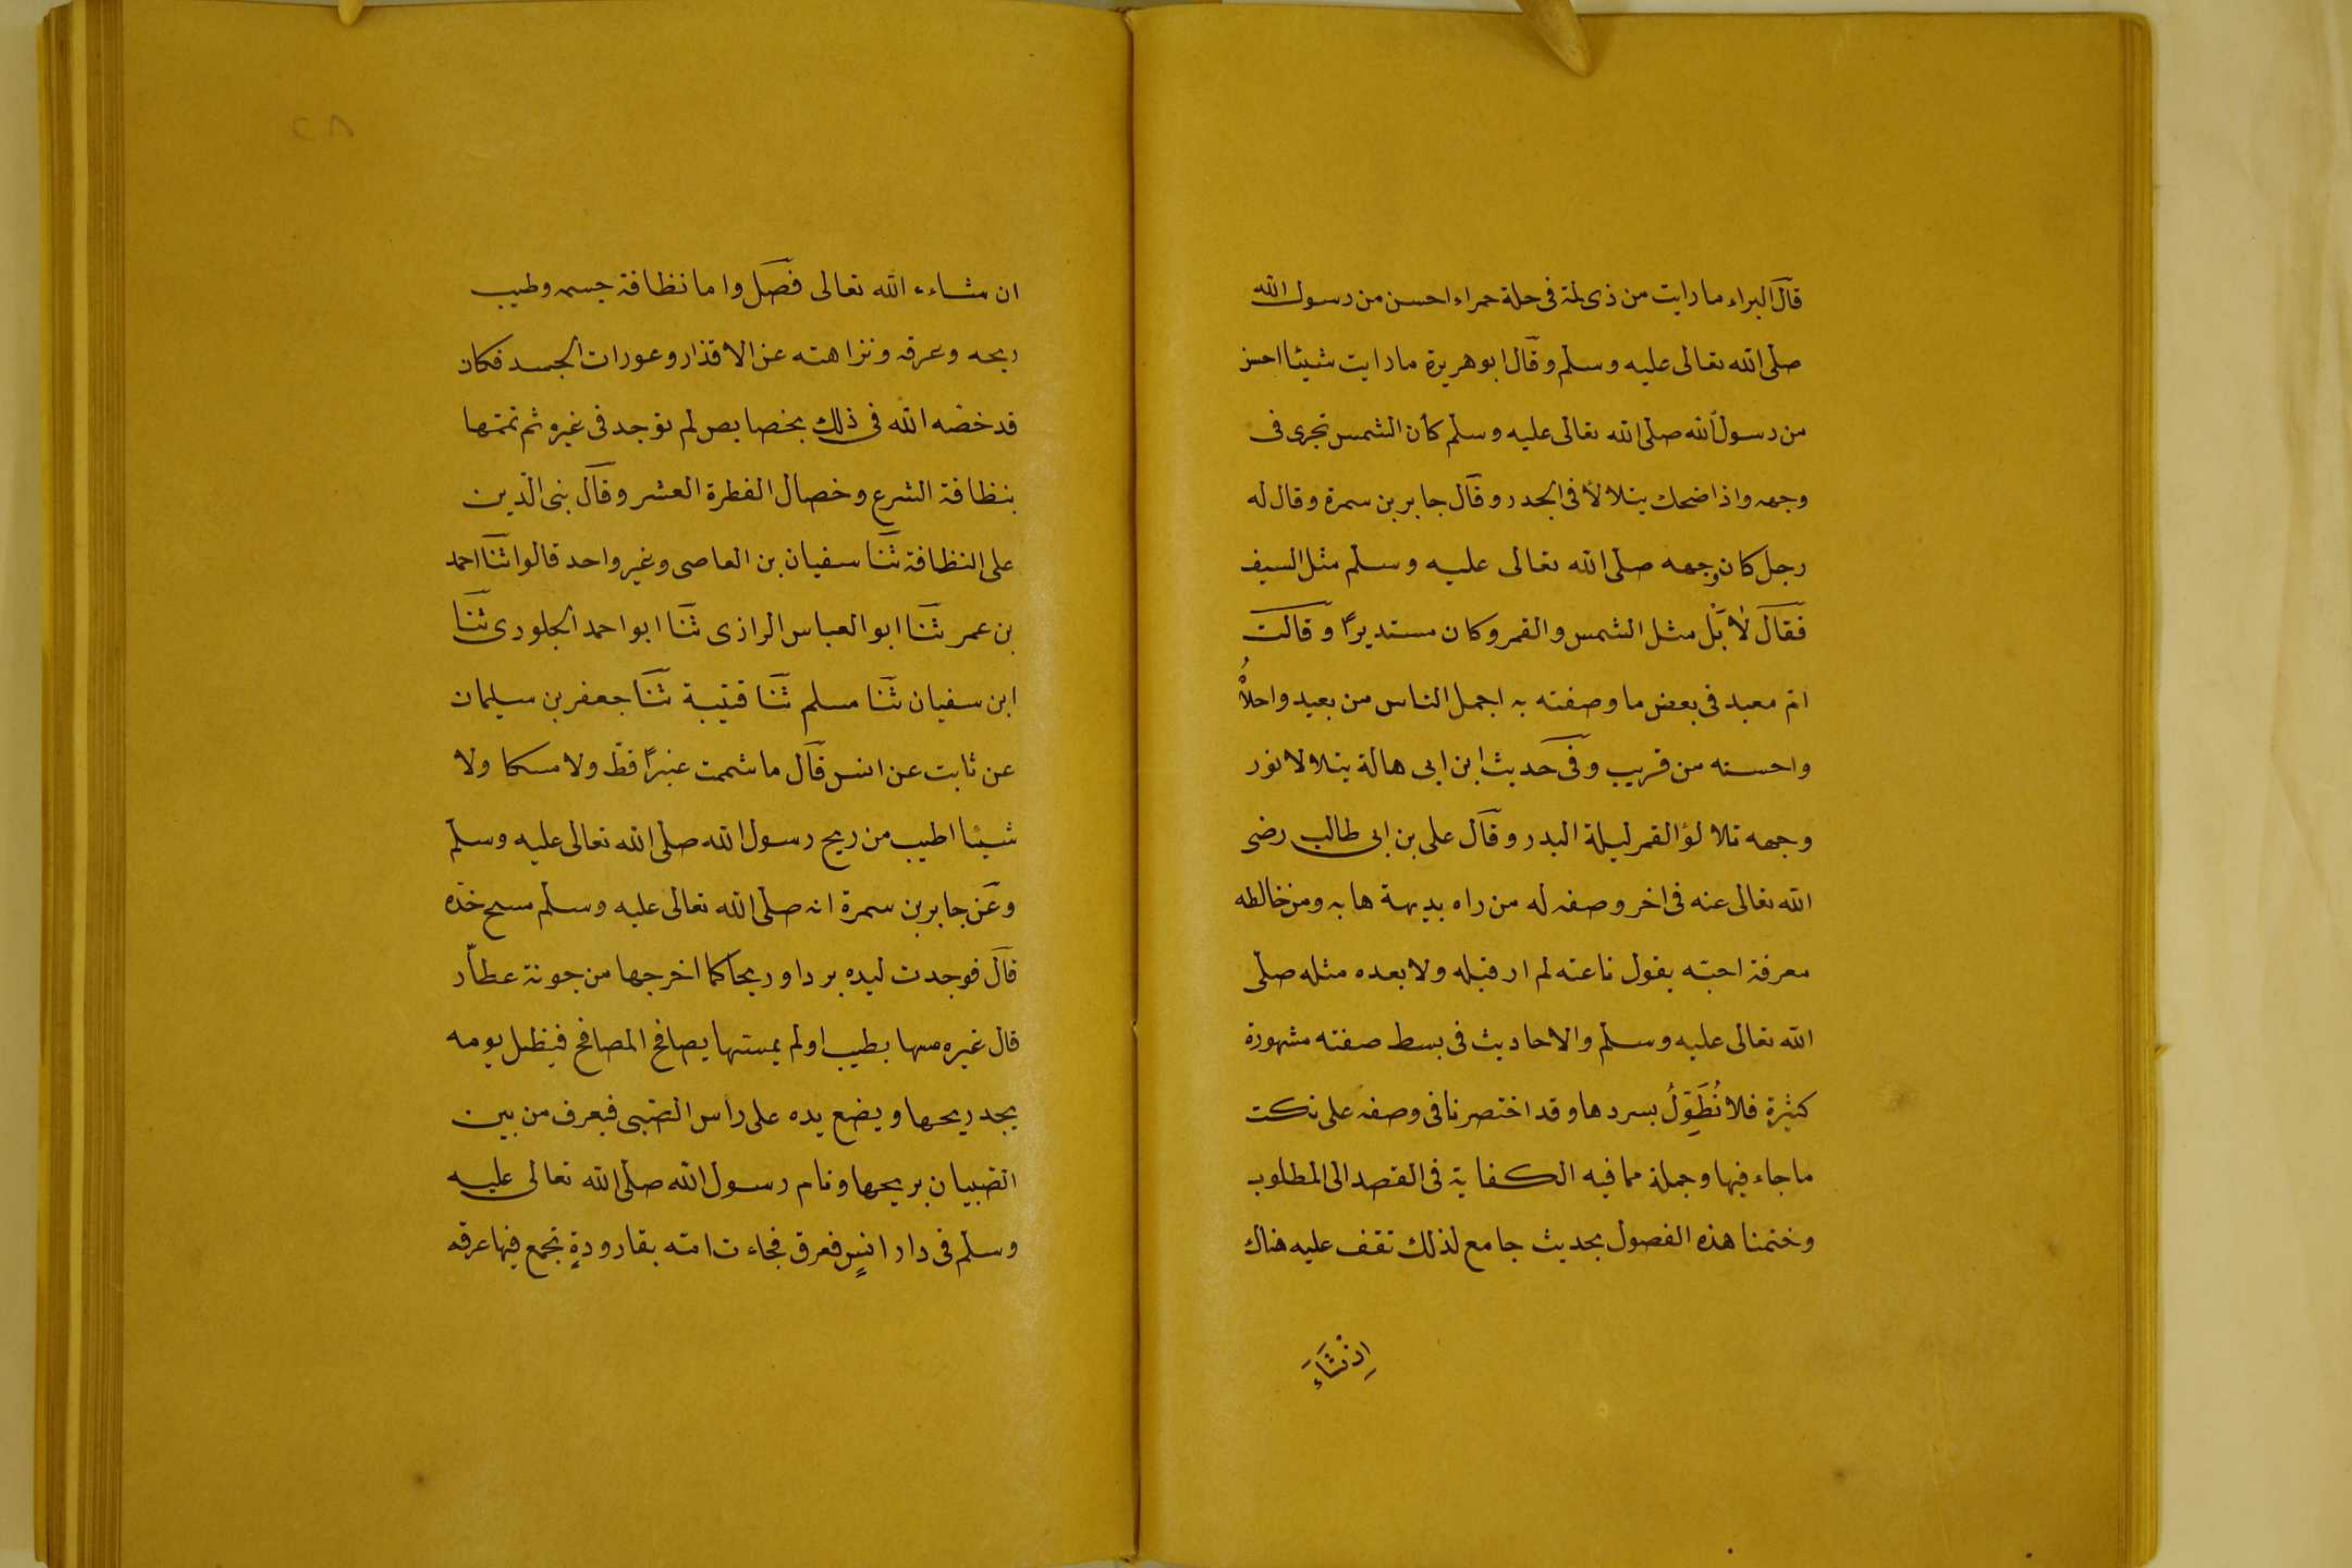 قال البراء ما رايت من ذى لمة فى حلة حمراء احسن من رسول الله
صلى الله تعالى عليه وسلم وقال ابو هريرة ما رايت شيئا احسن
من رسول الله صلى الله تعالى عليه وسلم كأن الشمس تجرى فى
وجهه واذا ضحك يتلالأ فى الجدر وقال جابر بن سمرة وقال له
رجل كان وجهه صلى الله تعالى عليه وسلم مثل السيف
فقال لا بل مثل الشمس والقمر وكان مستديرًا وقالت
ام معبد فى بعض ما وصفته به اجمل الناس من بعيد واحلاهُ
واحسنه من قريب وفى حديث ابن ابى هالة يتلالا نور
وجهه تلالؤ القمر ليلة البدر وقال على بن ابى طالب رضى
الله تعالى عنه فى اخر وصفه له من راه بديهة هابه ومن خالطه
معرفة احبته يقول ناعته لم ار قبله ولا بعده مثله صلى
الله تعالى عليه وسلم والاحاديث فى بسط صفته مشهورة
كثيرة فلا نُطَوِّلُ بسردها وقد اختصرنا فى وصفه على نكت
ما جاء فيها وجملة مما فيه الكفاية فى القصد الى المطلوب
وختمنا هذه الفصول بحديث جامع لذلك تقف عليه هناك
اِنْ شَاءَ
٢٨
ان شاء الله تعالى فصل واما نظافة جسمه وطيب
ريحه وعرقه ونزاهته عن الاقذار وعورات الجسد فكان
قد خصه الله فى ذلك بخصايص لم توجد فى غيره ثم تممها
بنظافة الشرع وخصال الفطرة العشر وقال بنى الدين
على النظافة ثنا سفيان بن العاصى وغير واحد قالوا ثنا احمد
بن عمر ثنا ابو العباس الرازى ثنا ابو احمد الجلودى ثنا
ابن سفيان ثنا مسلم ثنا قتيبة ثنا جعفر بن سليمان
عن ثابت عن انس قال ما شممت عنبرًا قط ولا مسكا ولا
شيئا اطيب من ريح رسول الله صلى الله تعالى عليه وسلم
وعن جابر بن سمرة انه صلى الله تعالى عليه وسلم مسح خده
قال فوجدت ليده بردا وريحا كما اخرجها من جونة عطار
قال غيره مسها بطيب او لم يمسها يصافح المصافح فيظل يومه
يجد ريحها ويضع يده على راس الصبى فيعرف من بين
الصبيان بريحها ونام رسول الله صلى الله تعالى عليه
وسلم فى دار انسٍ فعرق فجاءت امه بقارورةٍ تجمع فيها عرقه